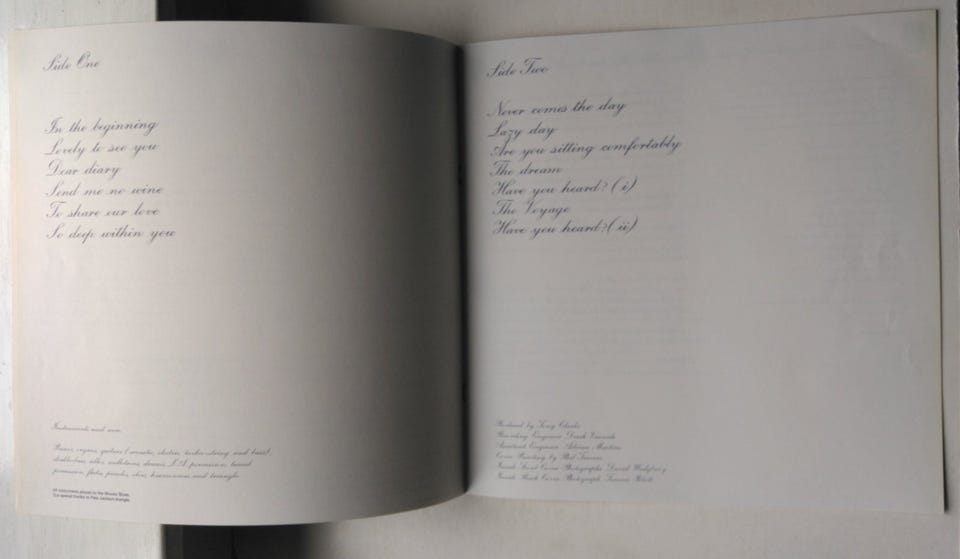 Side One
In the beginning
Lovely to see you
Dear diary
Send me no wine
To share our love
So deep within you
Instruments used were
Pianos, organs, guitars (acoustic, electric, twelve-string and bass),
double bass, cellos, mellotrons, drums, percussion,
percussion, flutes, piccolo, oboe, harmonicas and triangle
All instruments played by the Moody Blues
Our special thanks to Pete Jackson triangle
Side Two
Never comes the day
Lazy day
Are you sitting comfortably
The dream
Have you heard? (i)
The Voyage
Have you heard? (ii)
Produced by Tony Clarke
Recording Engineer Derek Varnals
Assistant Engineer Adrian Martins
Cover Painting by Phil Travers
Inside Front Cover Photographs David Wedgbury
Inside Back Cover Photograph Terence Ibbott